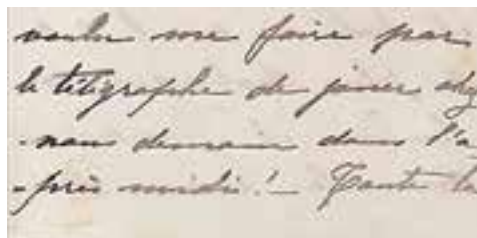 voulu me faire par
le télégraphe de jouer
-nan demain dans l'a
-près midi! - Toute la